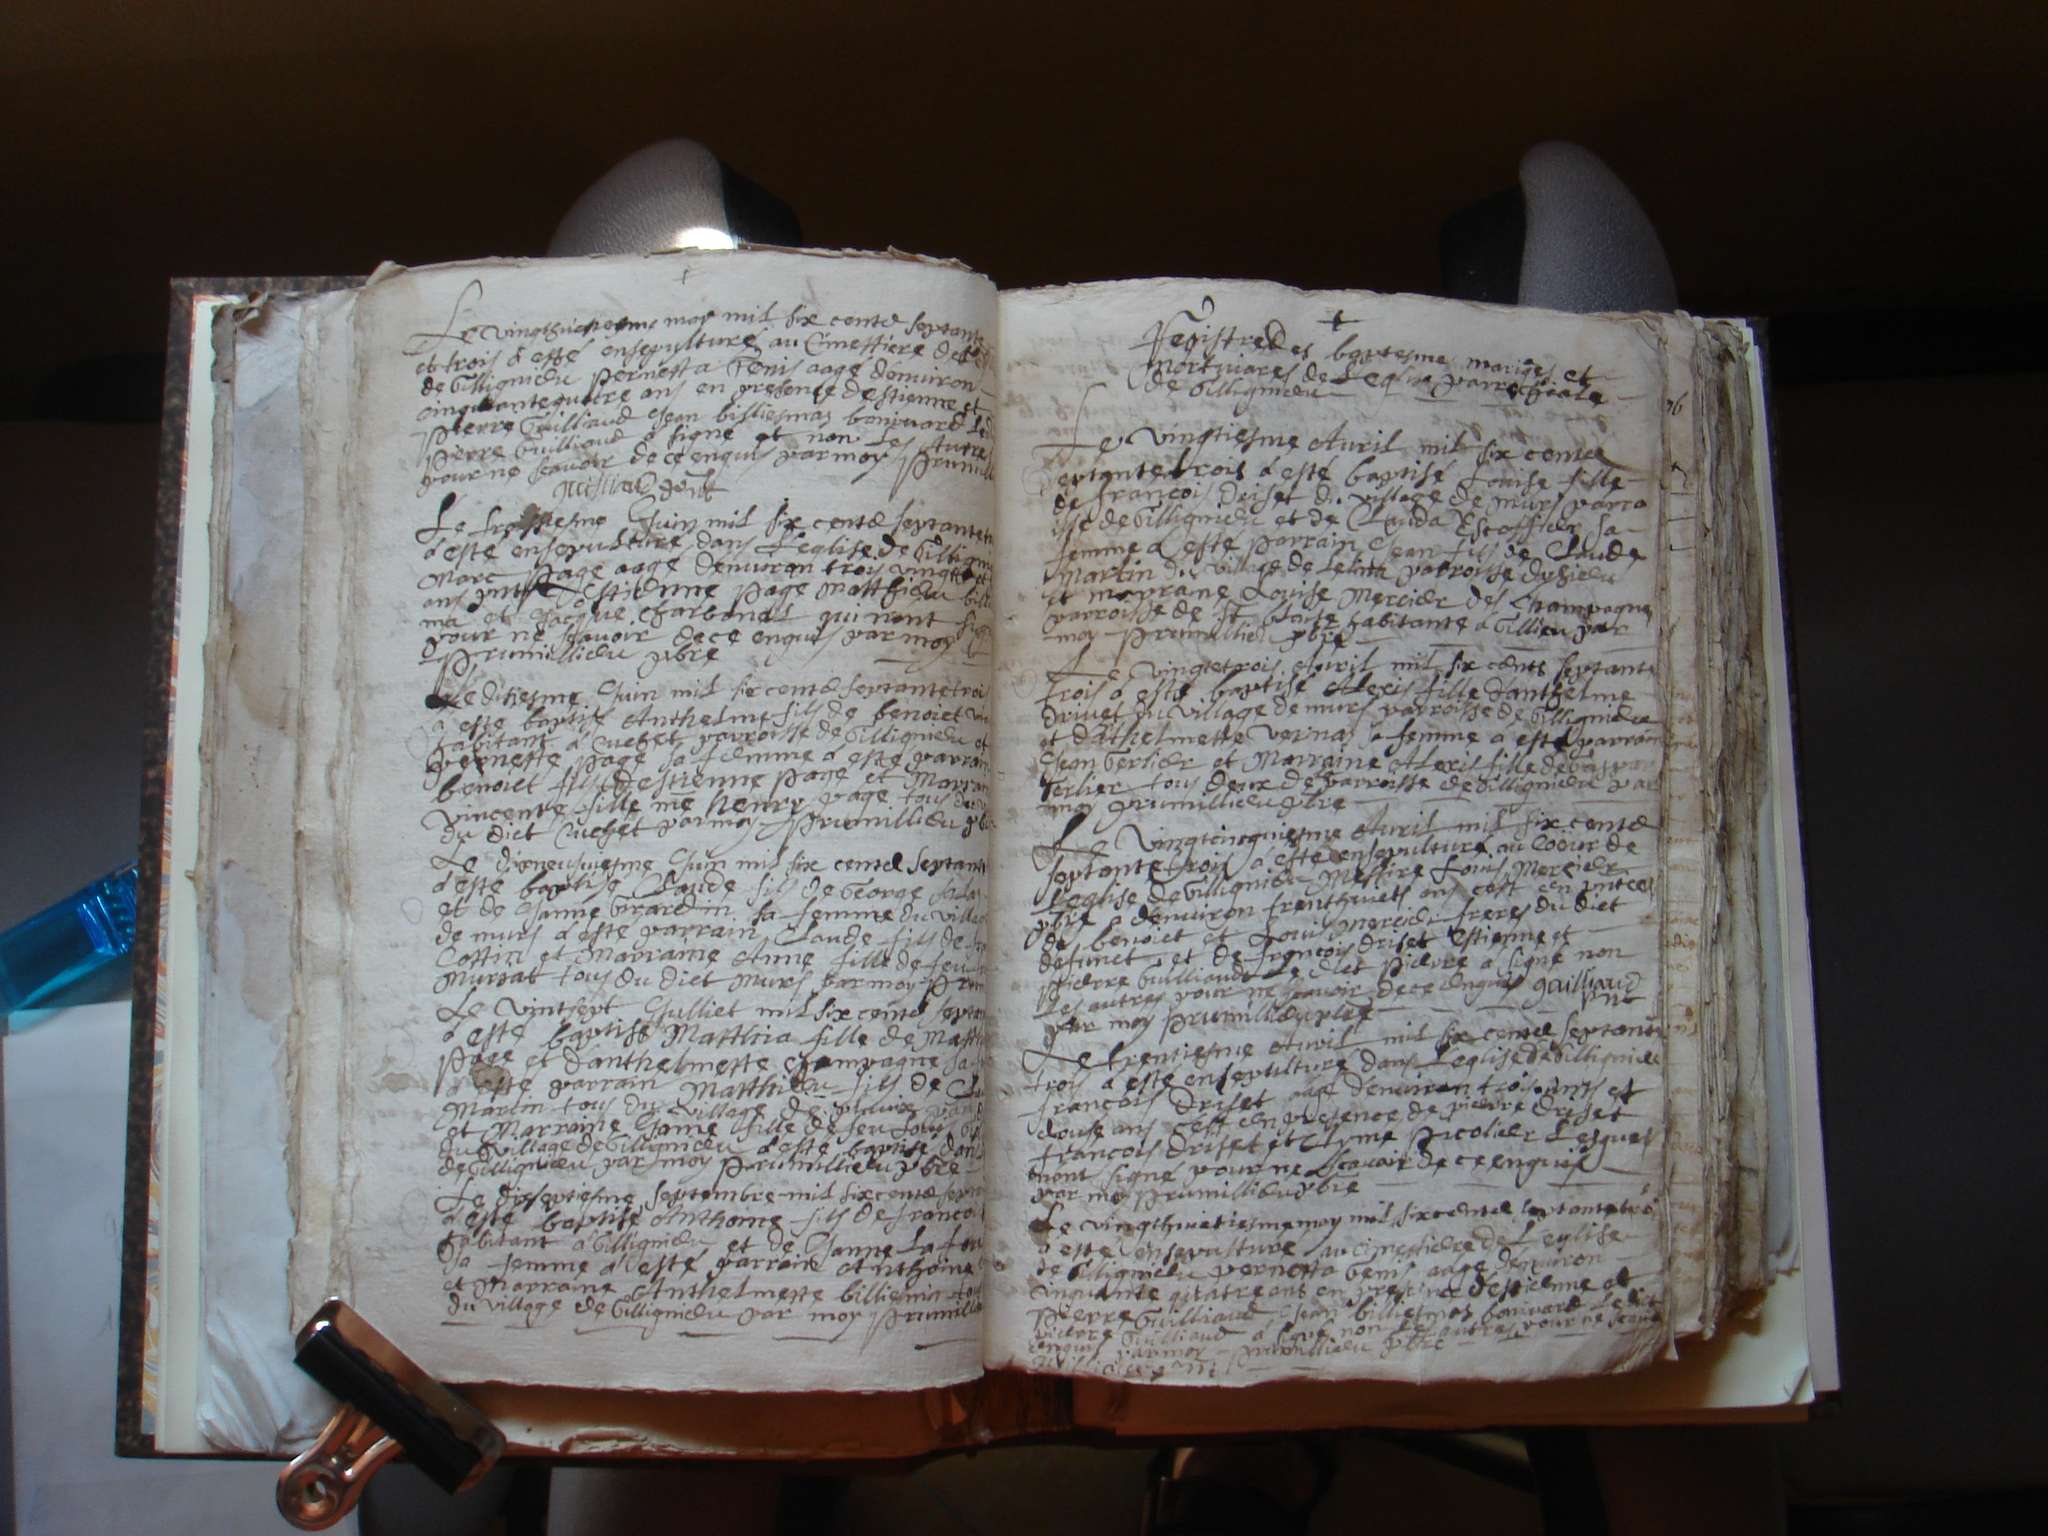 Le vingthuictiesme may mil six centz septante
et trois a esté ensepulturé au Cimettiere de
de Gillignieu pernetta Genis aagé denuiron
cinquantequatre ans en presence destienne et
pierre Guilliaud Jean billiesmaz boniuard Led
pierre Guilliaud a signé et non Les Autres
pour ne scauoir de ce enquis par moy prumilli
Le troisiesme Juin mil six centz septantet
a esté ensepulturé dans Leglise de Gillignie
Marc page aagé denuiron trois vingtz et
ans Estienne page Matthieu billi
ma et Jacque charbonet qui nont sign
pour ne scauoir de ce enquis par moy
prumillieu pbre
Le diziesme Juin mil six centz septantetrois
a esté baptisé Anthelme fils de benoiet
habitant a Cuchet parroisse de Gillignieu et
pernette page sa femme a esté parrain
benoiet fils destienne page et Marrai
Vincente fille me henry page tous
du dict Cuchet par moy prumillieu pbre
Le dixneufuiesme Juin mil six centz septant
a esté baptisé Claude fils de George
et de Janne Girardin sa femme du villa
de murs a esté parrain Claude fils de
Cottin et Marraine Anne fille de feu
tous du dict Murs par moy Prum
Le Vintsept Julliet mil six centz septan
a esté baptisé Matthia fille de Matth
page et danthelmette champagne sa
a esté parrain Matthieu fils de Cla
Martin tous du Village de
et Marraine Janne fille de feu Louis
du Village de Gillignieu a esté baptisé dans
de Gillignieu par moy Prumillieu pbre
Le dixseptiesme septembre mil six centz sept
a esté baptisé Anthoine fils de francoi
habitant a Gillignieu et de Janne La
sa femme a esté parrain Anthoine
et Marraine Anthelmette billiesma
du Village de Gillignieu par moy prumillie
Registre des baptesme mariges et
mortuares de Leglise parrochiale
de Gillignieu
Le Vingtiesme Auril mil six centz
septantetrois a esté baptisé Louise fille
de francois driset du village de murs parro
isse de Gillignieu et de Clauda Escoffier sa
femme a esté parrain Jean fils de Claude
Martin du village de parroisse
et marrane Louise Mercier des Champagne
parroisse de St blaise habitante a Gillieu par
moy prumillieu pbre
Le vingtetrois Auril mil six centz septante
trois a esté baptisé Alexis fille danthelme
driuet du Village de murs parroisse de Gillignieu
et danthelmette Verna sa femme a esté parrain
Jean terlier et Marraine Alexis fille de Gaspar
terlier tous deux de parroisse de Gillignieu par
moy prumillieu pbre
Le Vingtcincquiesme Auril mil six centz
septante trois a esté ensepulturé au Coeur de
Leglise de Gillignieu Messire Louis Mercier
pbre a denuiron trenthuict ans cest en
de benoiet et Louis Mercier freres du dict
defunct et de francois driset Estienne et
pierre Guilliaud Le dict pierre a signé non
Les autres pour ne scauoir de ce enquis guilliaud
par moy prumillieu pbre
Le trentiesme Auril mil six centz septante
trois a esté ensepulturé dans Leglise de Gillignieu
francois driset aagé denuiron trois et
douse ans cest en presence de pierre driset
francois driset et picolier Lesquels
nont signé pour ne scauoir de ce enquis
par moy prumillieu pbre
Le vingthuictiesme may mil six centz septantetroi
a esté ensepulturé au cimettiere de Leglise
de Gillignieu pernetta Genis aagé denuiron
cinquante quatre ans en presence destienne et
pierre Guilliaud Jean billiesmas boniuard Le dit
pierre Guilliaud a signé non Les autres pour ne scauoi
enquis par moy prumillieu pbre